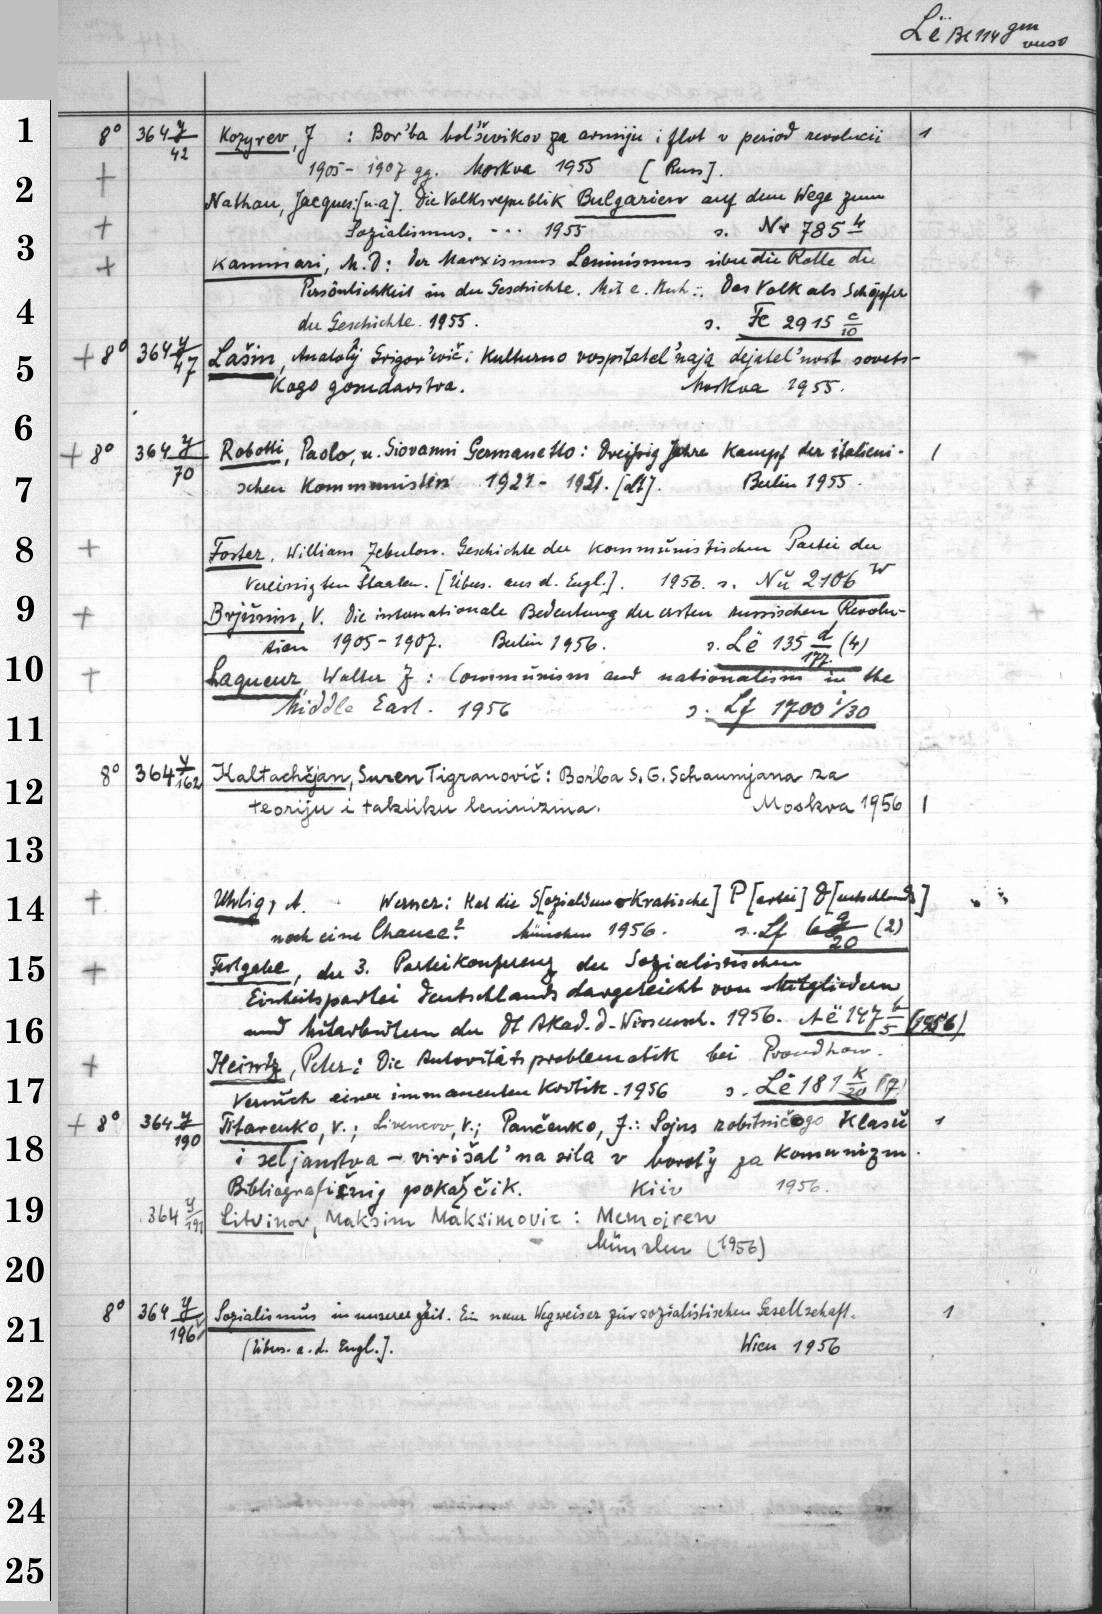 Lë Bl 114 gm verso
1 8° 364 y/42 Kozyrev, J : Bor'ba bol'ševikov za armiju i flot v period revolucii 1
1905-1907 gg. Moskva 1955 [Russ].
2 + Nathan, Jacques: [u.a]. Die Volksrepublik Bulgarien auf dem Wege zum
+ Sozialismus. --- 1955 s. Nr 785 4
3 + Kammari, M.D: Der Marxismus Leninismus über die Rolle der
Persönlichkeit in der Geschichte. Mit e. Anh.: Das Volk als Schöpfer
4 der Geschichte. 1955. s. Fc 2915 c/10
5 + 8° 364 y/47 Lašin, Anatolij Grigor'evič: Kulturno vospitatel'naja dejatel'nost sovets-
kogo gosudarstva. Moskva 1955.
6
+ 8° 364 y/70 Robotti, Paolo, u. Giovanni Germanetto: Dreißig Jahre Kampf der italieni- 1
7 schen Kommunisten 1921-1951. [dt]. Berlin 1955.
8 + Foster, William Zebulon. Geschichte der Kommunistischen Partei der
Vereinigten Staaten. [Übers. aus d. Engl.]. 1956. s. Nü 2106 w
9 + Brjunin, V. Die internationale Bedeutung der ersten russischen Revolu-
tion 1905-1907. Berlin 1956. s. Lë 135 d/177 (4)
10 + Laqueur, Walter Z : Communism and nationalism in the
11 Middle East. 1956 s. Lf 1700 i/30
12 8° 364 y/162 Kaltachčjan, Suren Tigranovič: Bor'ba S. G. Schaumjana za
teoriju i taktiku leninizma. Moskva 1956 1
13
14 + Uhlig, A. Werner: Hat die S[ozialdemokratische] P[artei] D[eutschlands]
noch eine Chance? München 1956. s. Lf (2)
15 + Festgabe, der 3. Parteikonferenz der Sozialistischen
Einheitspartei Deutschlands dargereicht von Mitgliedern
16 und Mitarbeitern der Dt Akad. d. Wissensch. 1956. Aë 147 b/5 (1956)
+ Heintz, Peter: Die Autoritätsproblematik bei Proudhon.
17 Versuch einer immanenten Kritik. 1956 s. Lë 181 k/20 (7)
+ 8° 364 y/190 Titarenko, V.; Livencov, V.; Pančenko, J.: Sojus robitničogo klasu 1
18 i seljanstva - virišal'na sila v borot'bi za komunizm.
Bibliografičnij pokažčik. Kiiv 1956.
19 364 y/191 Litvinov, Maksim Maksimovic: Memoiren
München (1956)
20
21 8° 364 y/196 Sozialismus in unserer Zeit. Ein neuer Wegweiser zur sozialistischen Gesellschaft. 1
[Übers. a. d. Engl.]. Wien 1956
22
23
24
25